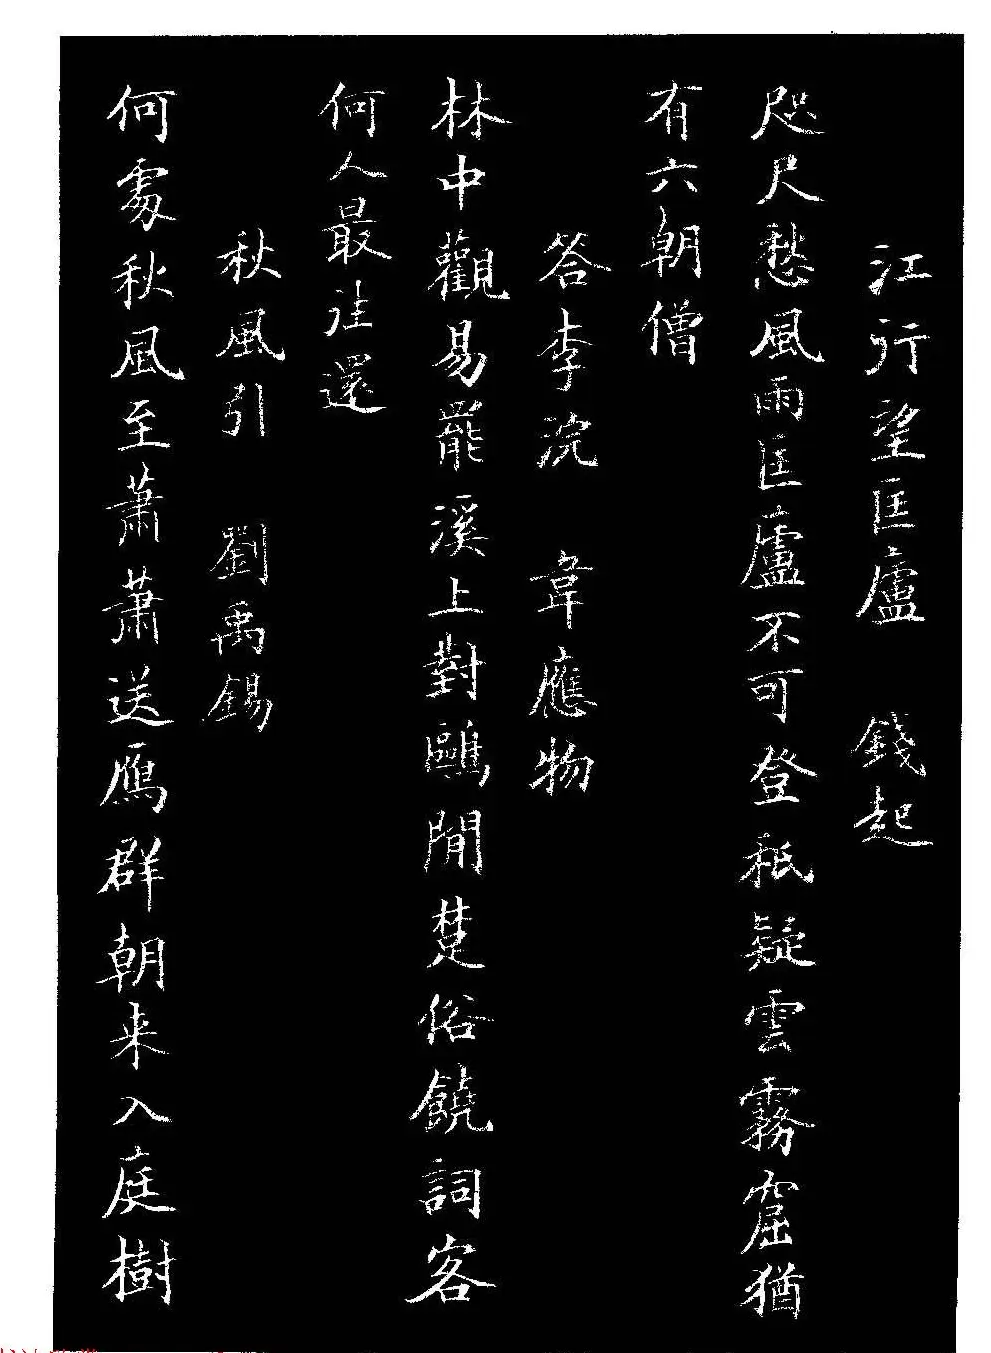 江行望匡廬 錢起
咫尺愁風雨匡廬不可登秖疑雲霧窟猶
有六朝僧
答李浣 韋應物
林中觀易罷溪上對鷗閒楚俗饒詞客
何人最往還
秋風引 劉禹錫
何處秋風至蕭蕭送雁群朝来入庭樹